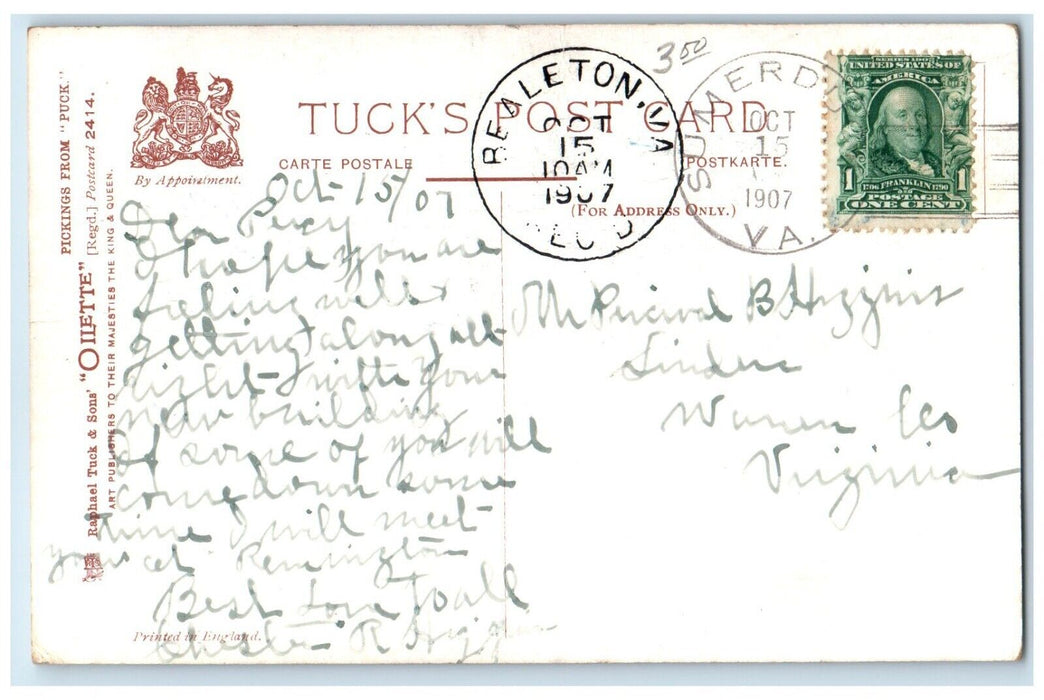 PICKINGS FROM "PUCK."
[Regd.] Postcard 2414.
Raphael Tuck & Sons' "OILETTE"
ART PUBLISHERS TO THEIR MAJESTIES THE KING & QUEEN.
By Appointment.
TUCK'S POST CARD
CARTE POSTALE
POSTKARTE.
(FOR ADDRESS ONLY.)
3.50
REALETON, VA
OCT
15
10AM
1907
REC'D
SUMERDU
OCT
15
1907
VA.
SERIES 1902
UNITED STATES OF
AMERICA
1706 FRANKLIN 1790
1 POSTAGE 1
ONE CENT
Oct 15/07
Dear Percy
I hope you are
feeling well &
getting along all
right with your
new building
If some of you will
come down some
time I will meet
you at Remington
Best Love to all
Chester R Higgins
Mr Percival B. Higgins
Linden
Warren Co
Virginia
Printed in England.